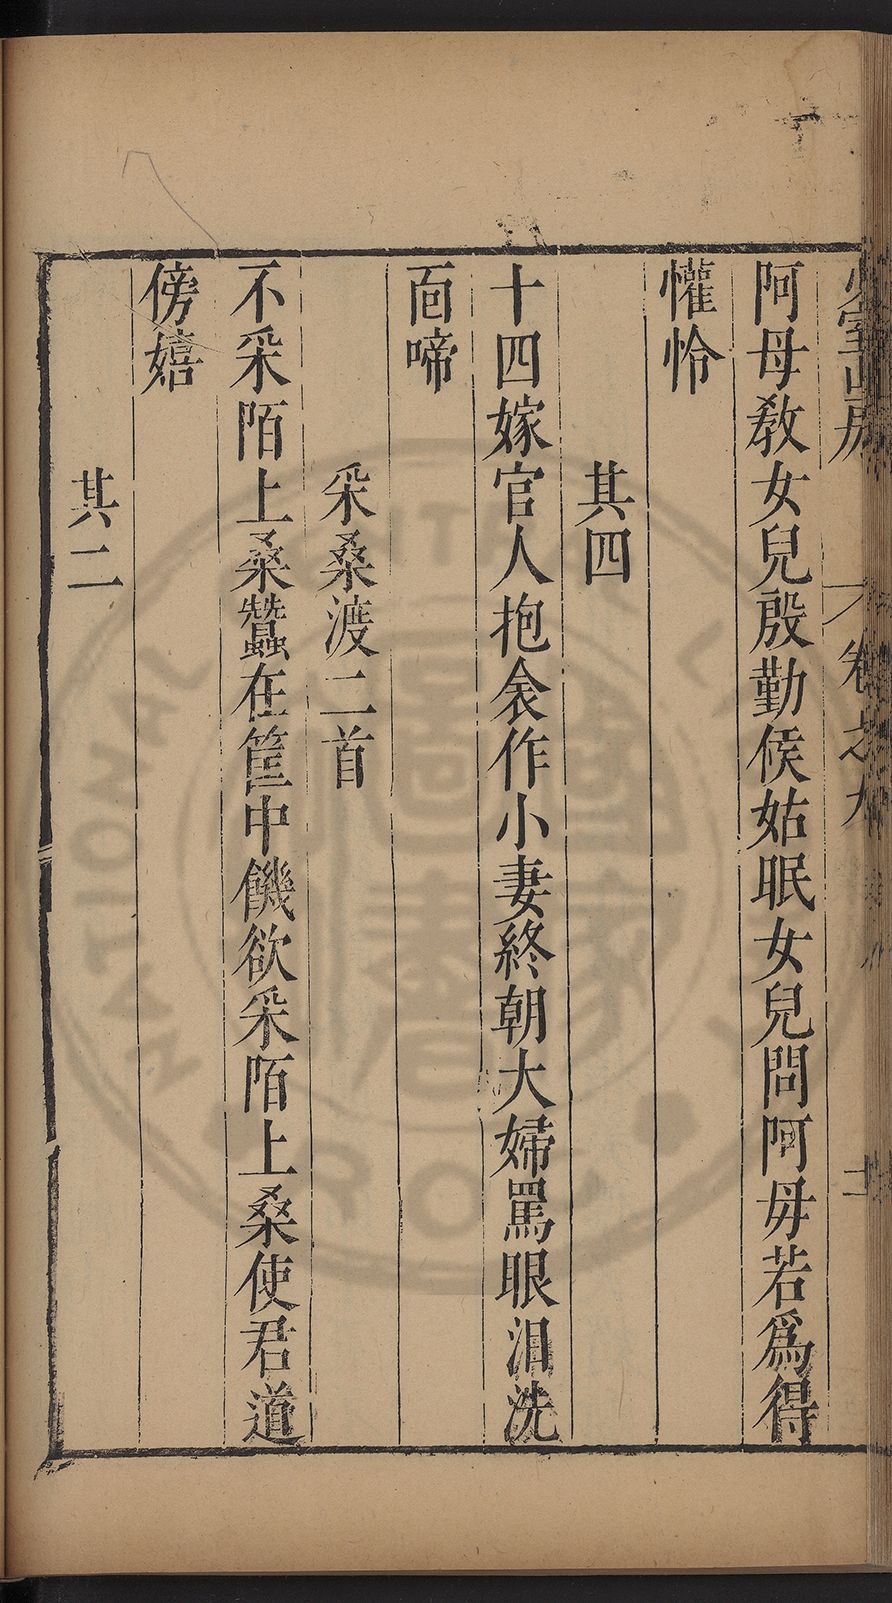 少室山房
卷之九
阿母教女兒殷勤候姑眠女兒問阿毋若爲得
懽怜
其四
十四嫁官人抱衾作小妻終朝大婦罵眼泪洗
靣啼
采桑渡二首
不采陌上桑蠶在筐中饑欲采陌上桑使君道
傍嬉
其二